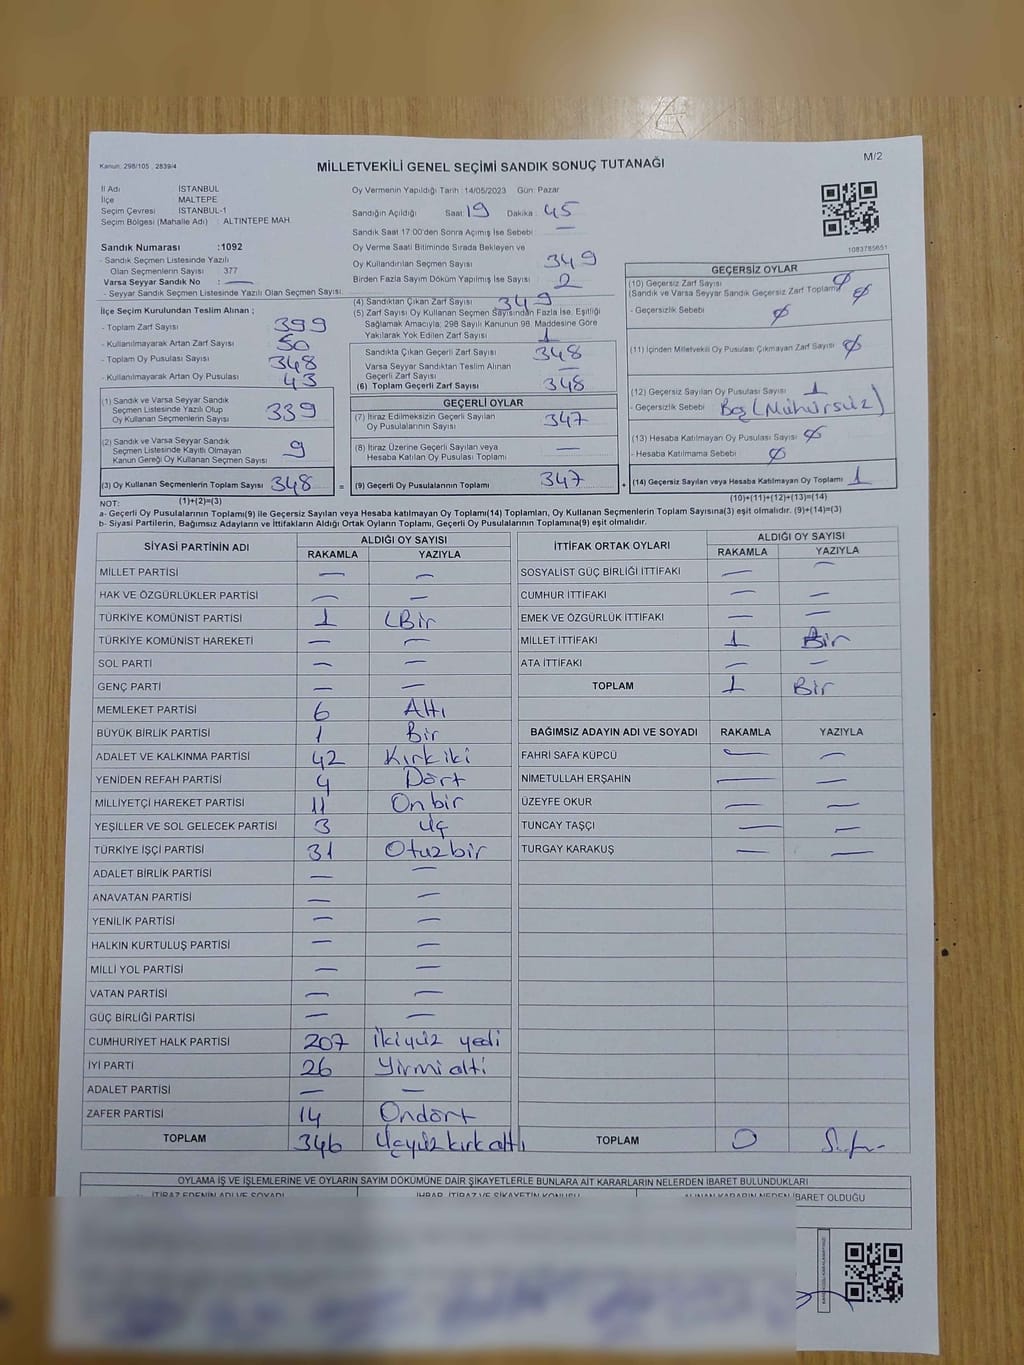 Kanun: 298/105 2839/4
MİLLETVEKİLİ GENEL SEÇİMİ SANDIK SONUÇ TUTANAĞI
M/2
İl Adı İSTANBUL
İlçe MALTEPE
Seçim Çevresi İSTANBUL-1
Seçim Bölgesi (Mahalle Adı) : ALTINTEPE MAH.
Sandık Numarası :1092
- Sandık Seçmen Listesinde Yazılı
Olan Seçmenlerin Sayısı : 377
Varsa Seyyar Sandık No : —
- Seyyar Sandık Seçmen Listesinde Yazılı Olan Seçmen Sayısı:
Oy Vermenin Yapıldığı Tarih : 14/05/2023 Gün: Pazar
Sandığın Açıldığı Saat: 19 Dakika : 45
Sandık Saat 17:00'den Sonra Açılmış İse Sebebi : —
Oy Verme Saati Bitiminde Sırada Bekleyen ve
Oy Kullandırılan Seçmen Sayısı 349
Birden Fazla Sayım Döküm Yapılmış İse Sayısı : 2
1083785651
İlçe Seçim Kurulundan Teslim Alınan ;
- Toplam Zarf Sayısı : 399
- Kullanılmayarak Artan Zarf Sayısı : 50
- Toplam Oy Pusulası Sayısı : 348
- Kullanılmayarak Artan Oy Pusulası : 43
(1) Sandık ve Varsa Seyyar Sandık
Seçmen Listesinde Yazılı Olup
Oy Kullanan Seçmenlerin Sayısı : 339
(2) Sandık ve Varsa Seyyar Sandık
Seçmen Listesinde Kayıtlı Olmayan
Kanun Gereği Oy Kullanan Seçmen Sayısı : 9
(3) Oy Kullanan Seçmenlerin Toplam Sayısı : 348
(1)+(2)=(3)
(4) Sandıktan Çıkan Zarf Sayısı : 349
(5) Zarf Sayısı Oy Kullanan Seçmen Sayısından Fazla İse, Eşitliği
Sağlamak Amacıyla, 298 Sayılı Kanunun 98. Maddesine Göre
Yakılarak Yok Edilen Zarf Sayısı : 1
Sandıkta Çıkan Geçerli Zarf Sayısı : 348
Varsa Seyyar Sandıktan Teslim Alınan
Geçerli Zarf Sayısı : —
(6) Toplam Geçerli Zarf Sayısı : 348
GEÇERLİ OYLAR
(7) İtiraz Edilmeksizin Geçerli Sayılan
Oy Pusulalarının Sayısı: 347
(8) İtiraz Üzerine Geçerli Sayılan veya
Hesaba Katılan Oy Pusulası Toplamı : —
= (9) Geçerli Oy Pusulalarının Toplamı : 347 +
GEÇERSİZ OYLAR
(10) Geçersiz Zarf Sayısı : Ø
(Sandık ve Varsa Seyyar Sandık Geçersiz Zarf Toplamı) Ø
- Geçersizlik Sebebi : Ø
(11) İçinden Milletvekili Oy Pusulası Çıkmayan Zarf Sayısı : Ø
(12) Geçersiz Sayılan Oy Pusulası Sayısı : 1
- Geçersizlik Sebebi : Boş (Mühürsüz)
(13) Hesaba Katılmayan Oy Pusulası Sayısı : Ø
- Hesaba Katılmama Sebebi : Ø
(14) Geçersiz Sayılan veya Hesaba Katılmayan Oy Toplamı : 1
(10)+(11)+(12)+(13)=(14)
NOT:
a- Geçerli Oy Pusulalarının Toplamı(9) ile Geçersiz Sayılan veya Hesaba katılmayan Oy Toplamı(14) Toplamları, Oy Kullanan Seçmenlerin Toplam Sayısına(3) eşit olmalıdır. (9)+(14)=(3)
b- Siyasi Partilerin, Bağımsız Adayların ve İttifakların Aldığı Ortak Oyların Toplamı, Geçerli Oy Pusulalarının Toplamına(9) eşit olmalıdır.
SİYASİ PARTİNİN ADI ALDIĞI OY SAYISI
RAKAMLA YAZIYLA
MİLLET PARTİSİ — —
HAK VE ÖZGÜRLÜKLER PARTİSİ — —
TÜRKİYE KOMÜNİST PARTİSİ 1 Bir
TÜRKİYE KOMÜNİST HAREKETİ — —
SOL PARTİ — —
GENÇ PARTİ — —
MEMLEKET PARTİSİ 6 Altı
BÜYÜK BİRLİK PARTİSİ 1 Bir
ADALET VE KALKINMA PARTİSİ 42 Kırk iki
YENİDEN REFAH PARTİSİ 4 Dört
MİLLİYETÇİ HAREKET PARTİSİ 11 On bir
YEŞİLLER VE SOL GELECEK PARTİSİ 3 Üç
TÜRKİYE İŞÇİ PARTİSİ 31 Otuz bir
ADALET BİRLİK PARTİSİ — —
ANAVATAN PARTİSİ — —
YENİLİK PARTİSİ — —
HALKIN KURTULUŞ PARTİSİ — —
MİLLİ YOL PARTİSİ — —
VATAN PARTİSİ — —
GÜÇ BİRLİĞİ PARTİSİ — —
CUMHURİYET HALK PARTİSİ 207 İkiyüz yedi
İYİ PARTİ 26 Yirmi altı
ADALET PARTİSİ — —
ZAFER PARTİSİ 14 Ondört
TOPLAM 346 Üçyüz kırk altı
İTTİFAK ORTAK OYLARI ALDIĞI OY SAYISI
RAKAMLA YAZIYLA
SOSYALİST GÜÇ BİRLİĞİ İTTİFAKI — —
CUMHUR İTTİFAKI — —
EMEK VE ÖZGÜRLÜK İTTİFAKI — —
MİLLET İTTİFAKI 1 Bir
ATA İTTİFAKI — —
TOPLAM 1 Bir
BAĞIMSIZ ADAYIN ADI VE SOYADI RAKAMLA YAZIYLA
FAHRİ SAFA KÜPCÜ — —
NİMETULLAH ERŞAHİN — —
ÜZEYFE OKUR — —
TUNCAY TAŞÇI — —
TURGAY KARAKUŞ — —
TOPLAM 0 Sıfır
OYLAMA İŞ VE İŞLEMLERİNE VE OYLARIN SAYIM DÖKÜMÜNE DAİR ŞİKAYETLERLE BUNLARA AİT KARARLARIN NELERDEN İBARET BULUNDUKLARI
İTİRAZ EDENİN ADI VE SOYADI İHBAR, İTİRAZ VE ŞİKAYETİN KONUSU ALINAN KARARIN NEDEN İBARET OLDUĞU